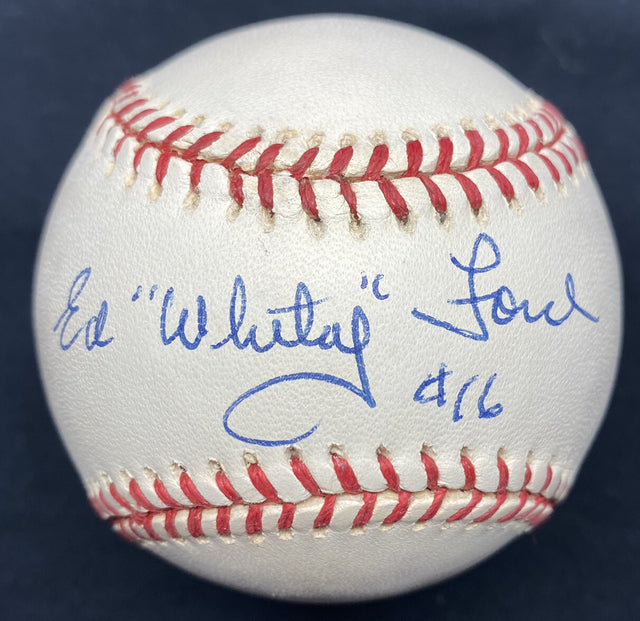 Ed "Whitey" Ford
#16